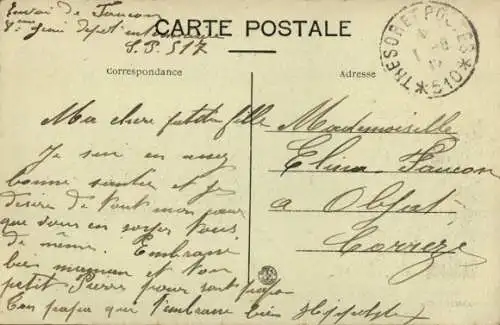 Envoi de Faucon
CARTE POSTALE
S.P. 517
TRESOR ET POSTES
* 510 *
Correspondance
Adresse
Ma chere petite fille
Je suis en assez
bonne santée et je
desire de tout mon
que vous en soyez tous
de même. Embrasse
bien maman et ton
petit Pierre pour son papa
Ton papa qui t'embrasse bien
Mademoiselle
Elina Faucon
a Objat
Correze